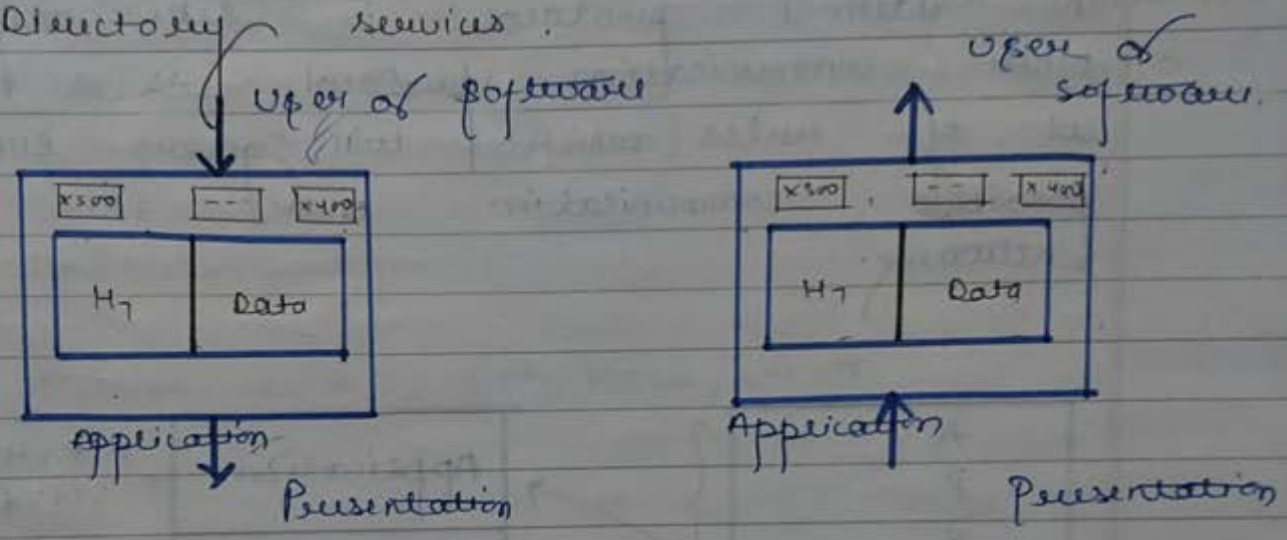 Directory services.
User of software
X500 -- X400
H7 Data
Application
Presentation
User of
software.
X500 -- X400
H7 Data
Application
Presentation